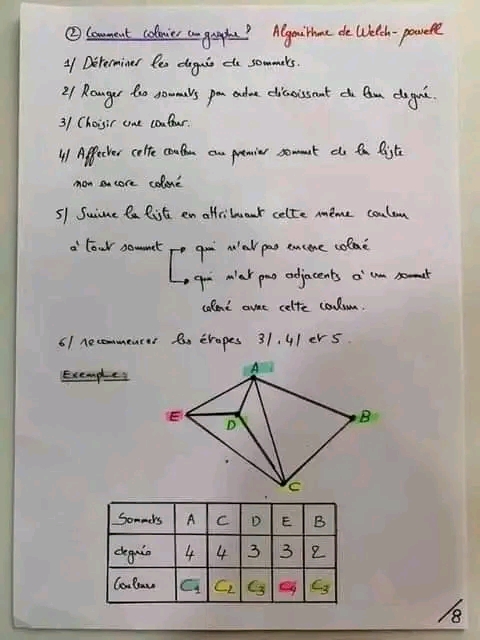 ② Comment colorier un graphe? Algorithme de Welch-powell
1/ Déterminer les degrés de sommets.
2/ Ranger les sommets par ordre décroissant de leur degré.
3/ Choisir une couleur.
4/ Affecter cette couleur au premier sommet de la liste
non encore coloré
5/ Suivre la liste en attribuant cette même couleur
à tout sommet → qui n'est pas encore coloré
→ qui n'est pas adjacents à un sommet
coloré avec cette couleur.
6/ recommencer les étapes 3/, 4/ et 5.
Exemple:
A
E D B
C
Sommets A C D E B
degrés 4 4 3 3 2
Couleurs C1 C2 C3 C4 C3
/8